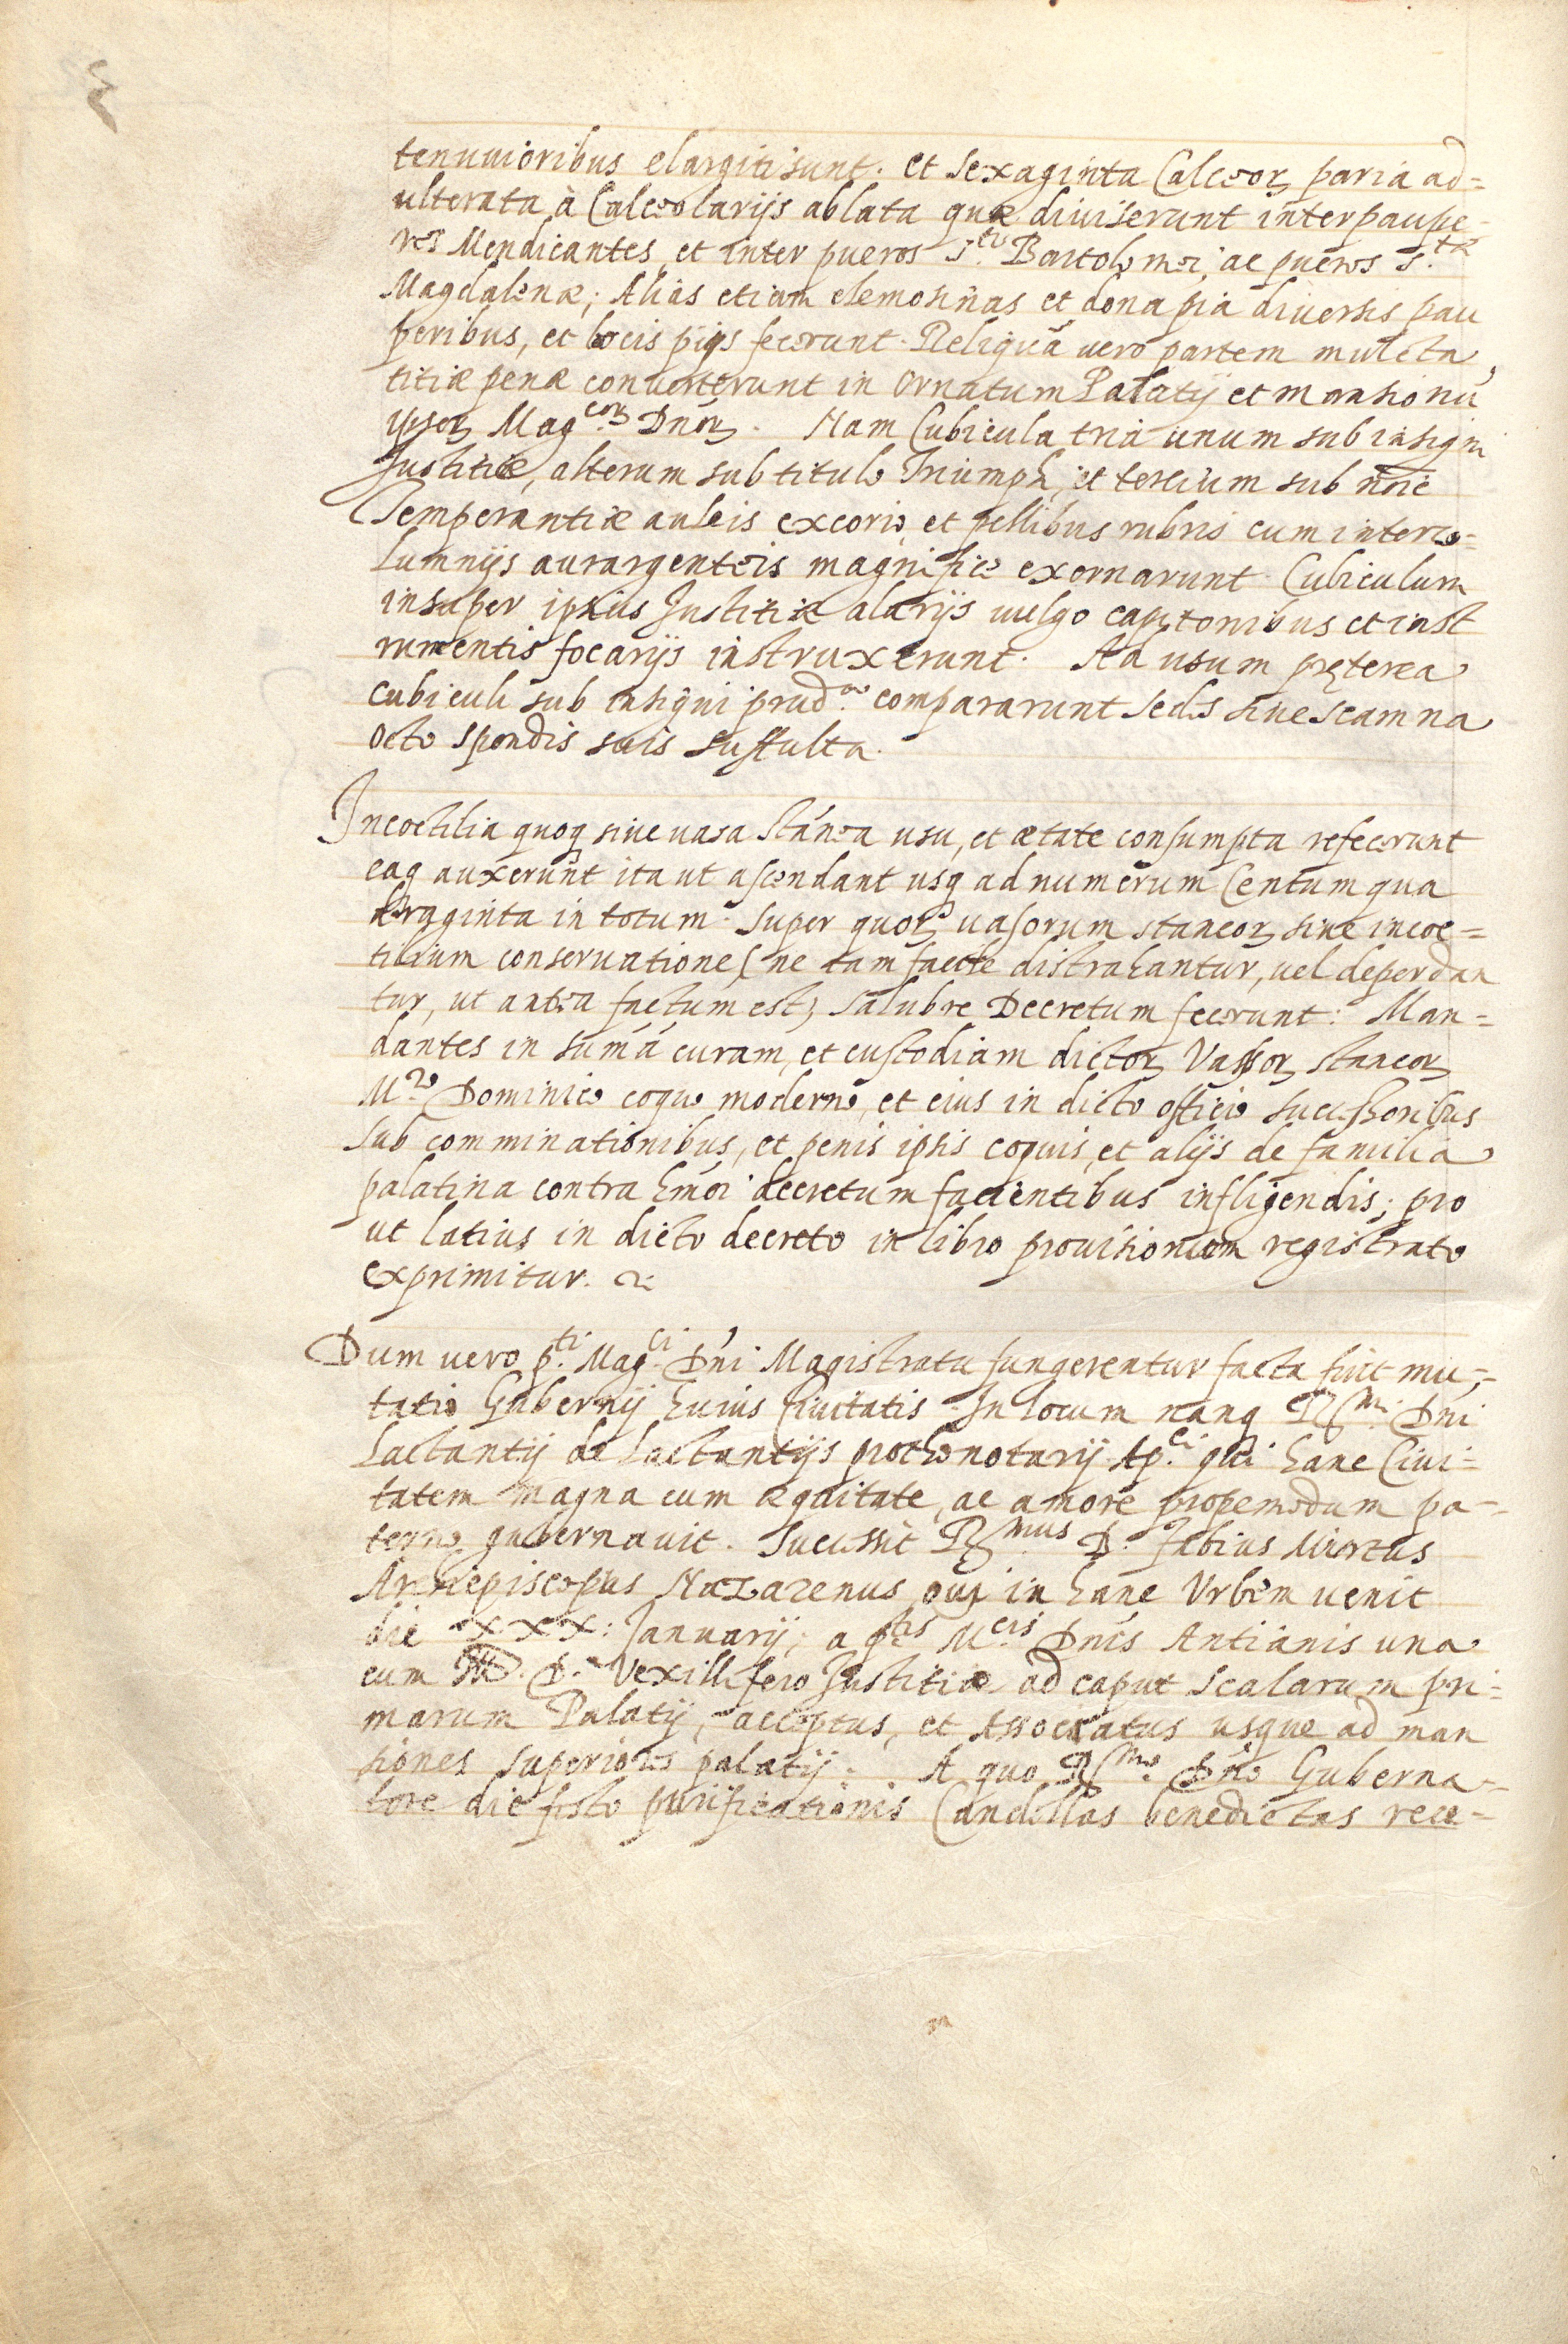 tenuuioribus elargiti sunt. et sexaginta Calceoꝝ paria ad=
ulterata à Calceolarijs ablata quæ diuiserunt inter paupe-
res Mendicantes, et inter pueros S.ti Bartolomei, ac pueros S.tæ
Magdalenæ; Alias etiam elemosinas et dona pia diuersis pau
peribus, et locis pijs fecerunt. Reliquā vero partem mulcta
titiæ penæ conuerterunt in Ornatum Palatij et mansionū
ipsoꝝ Mag.coꝝ Dnōꝝ. Nam Cubicula tria unum sub insigni
Justitiæ, alterum sub titulo Triumph, et tertium sub nōie
Temperantiæ auleis excorio et pellibus rubris cum interco=
lumnijs aurargenteis magnifice exornarunt. Cubiculum
insuper ipsius Justitiæ alarijs uulgo capitonibus et inst
rumentis focarijs instruxerunt. Ad usum pręterea
cubiculi sub insigni prud.æ compararunt sedes siue scamna
octo spondis suis suffulta.
Incoctilia quoq siue uasa stánea usu, et ætate consumpta refecerunt
eaq auxerunt ita ut ascendant usq ad numerum Centum qua
draginta in totum. Super quoꝝ uasorum staneoꝝ siue incoc=
tilium conseruatione (ne tam facile distrahantur, uel deperdan
tur, ut antea factum est) salubre Decretum fecerunt: Man=
dantes in sumā curam, et custodiam dictoꝝ Vasoꝝ staneoꝝ
M.ro Dominico coquo moderno, et eius in dicto officio successoribus
sub comminationibus, et penis ipsis coquis, et alijs de familia
palatina contra hmōi decretum facientibus infligendis; pro
ut latius in dicto decreto in libro prouisionum registrato
exprimitur.
Dum uero p.ti Mag.ci Dńi Magistratu fungerentur facta fuit mu=
tatio Gubernij huius Ciuitatis. In locum nanq R.mi Dńi
Lactantij de Lactantijs prothonotarij Ap.ci qui hanc Ciui=
tatem magna cum æquitate, ac amore propemodum pa-
terno gubernauit. Successit R.mus D. Fabius Mirtus
Archiepiscopus Nazarenus qui in hanc Vrbem uenit
die XXX: Januarij; a p.tis M.cis Dńis Antianis una
cum D. Vexillifero Justitiæ ad caput scalarum pri=
marum Palatij, acceptus, et Associatus usque ad man
siones superiores palatij. A quo R.mo Dńo Guberna-
tore die festo purificationis Candellas benedictas rece-